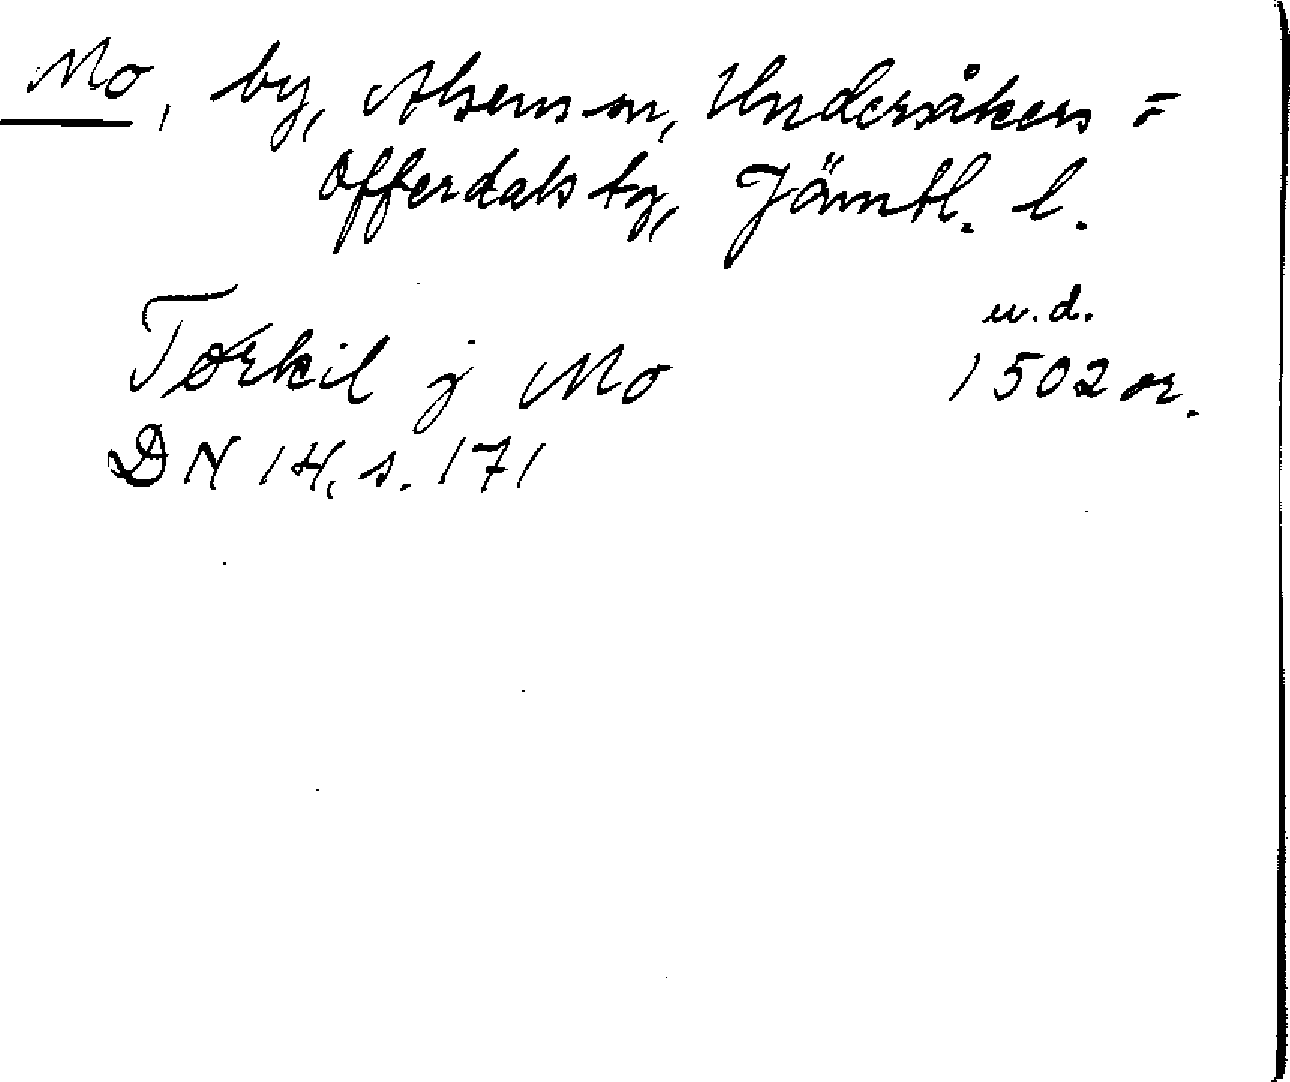 Mo, by, Alsens sn, Undersåkers =
Offerdals tg, Jämtl. l.
u.d.
Torkil j Mo 1502 or.
DN 14, s. 171